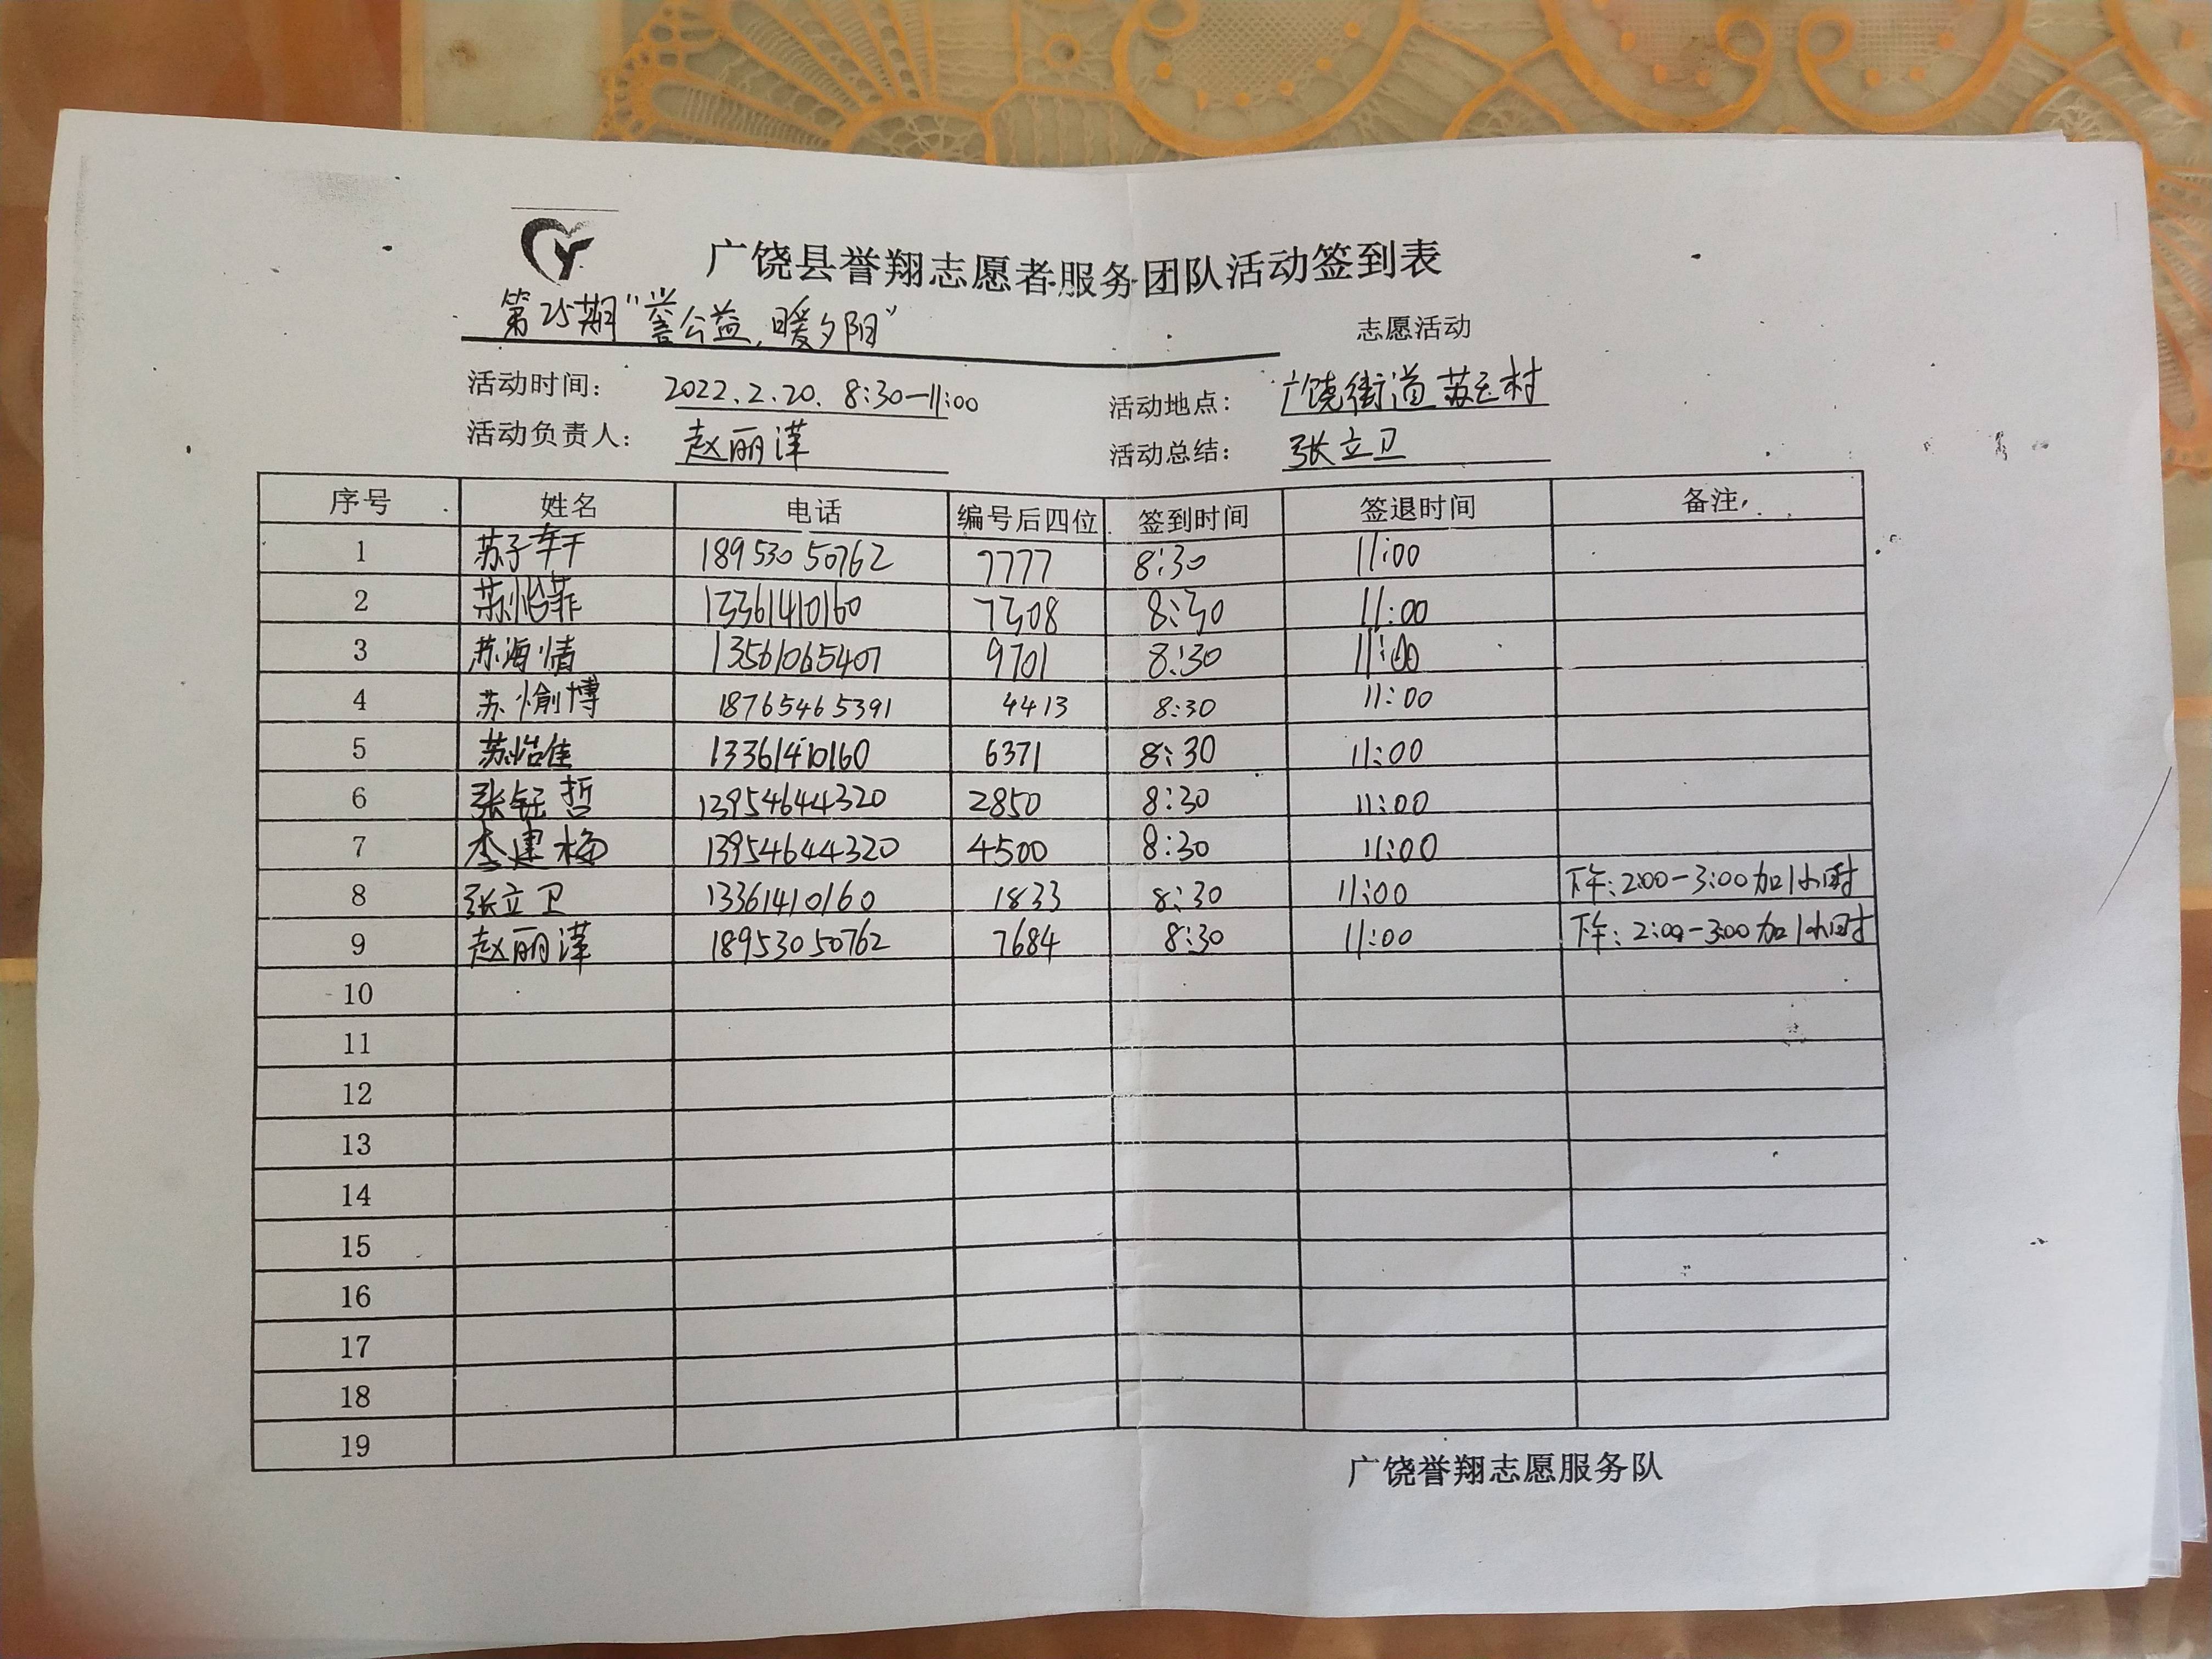 广饶县誉翔志愿者服务团队活动签到表
第25期“誉公益,暖夕阳” 志愿活动
活动时间: 2022.2.20. 8:30—11:00 活动地点: 广饶街道 苏王村
活动负责人: 赵丽萍 活动总结: 张立卫
序号 姓名 电话 编号后四位 签到时间 签退时间 备注
1 苏子轩 18953050762 7777 8:30 11:00
2 苏怡菲 13361410160 7308 8:30 11:00
3 苏海情 13561065407 9701 8:30 11:00
4 苏愉博 18765465391 4413 8:30 11:00
5 苏怡佳 13361410160 6371 8:30 11:00
6 张钰哲 13954644320 2850 8:30 11:00
7 李建梅 13954644320 4500 8:30 11:00
8 张立卫 13361410160 1833 8:30 11:00 下午:2:00-3:00加1小时
9 赵丽萍 18953050762 7684 8:30 11:00 下午:2:00-3:00加1小时
10
11
12
13
14
15
16
17
18
19
广饶誉翔志愿服务队